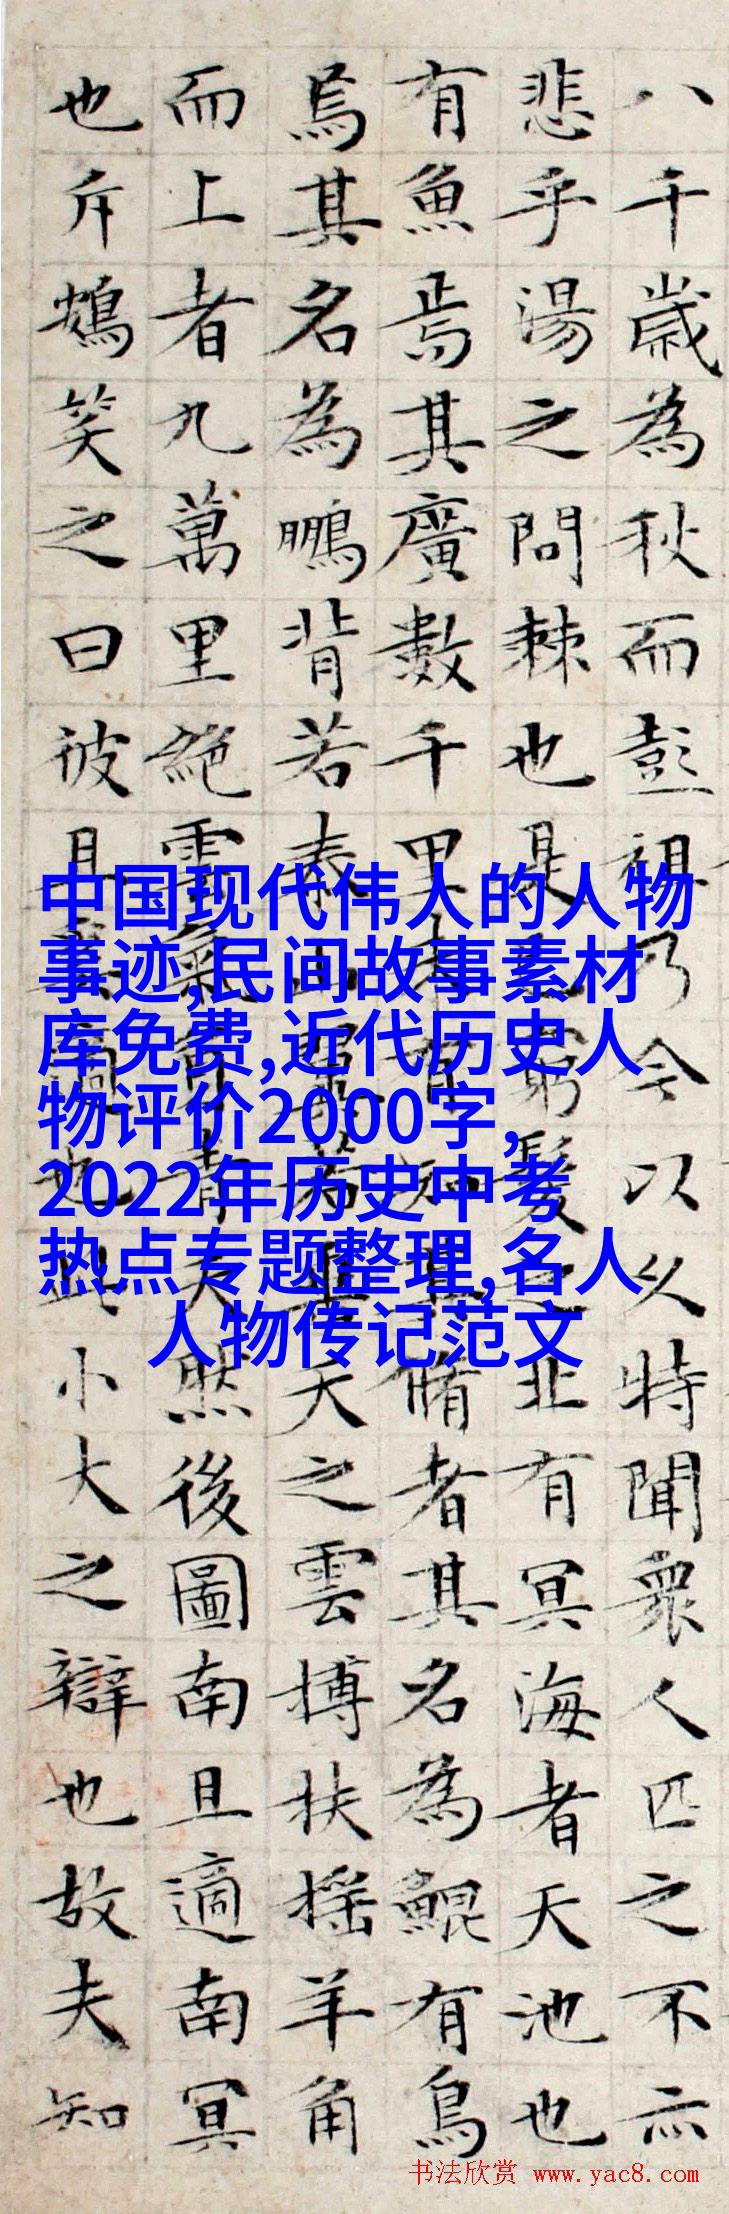 八千歲為秋而彭祖乃今以久特聞衆人匹之不亦
悲乎湯之問棘也是已窮髮之北有冥海者天池也
有魚焉其廣數千里未有知其脩者其名為鯤有鳥
焉其名為鵬背若泰山翼若垂天之雲搏扶搖羊角
而上者九萬里絕雲氣負青天然後圖南且適南冥
也斥鴳笑之曰彼且奚適也此小大之辯也故夫知
中国现代伟人的人物
事迹,民间故事素材
库免费,近代历史人
物评价2000字,
2022年历史中考
热点专题整理,名人
人物传记范文
书法欣赏 www.yac8.com